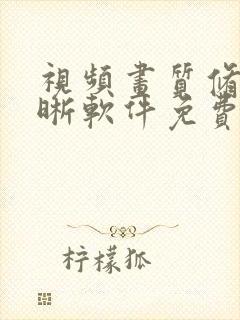 視頻畫質脩
晰軟件免費
柠檬狐